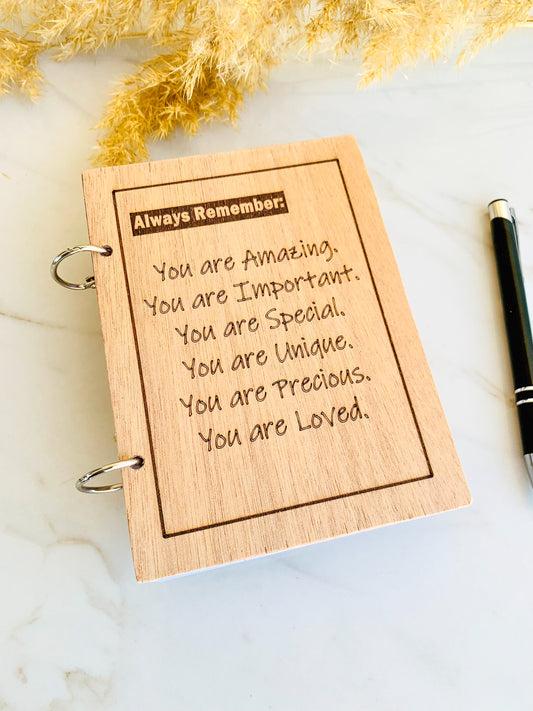 Always Remember:
You are Amazing.
You are Important.
You are Special.
You are Unique.
You are Precious.
You are Loved.